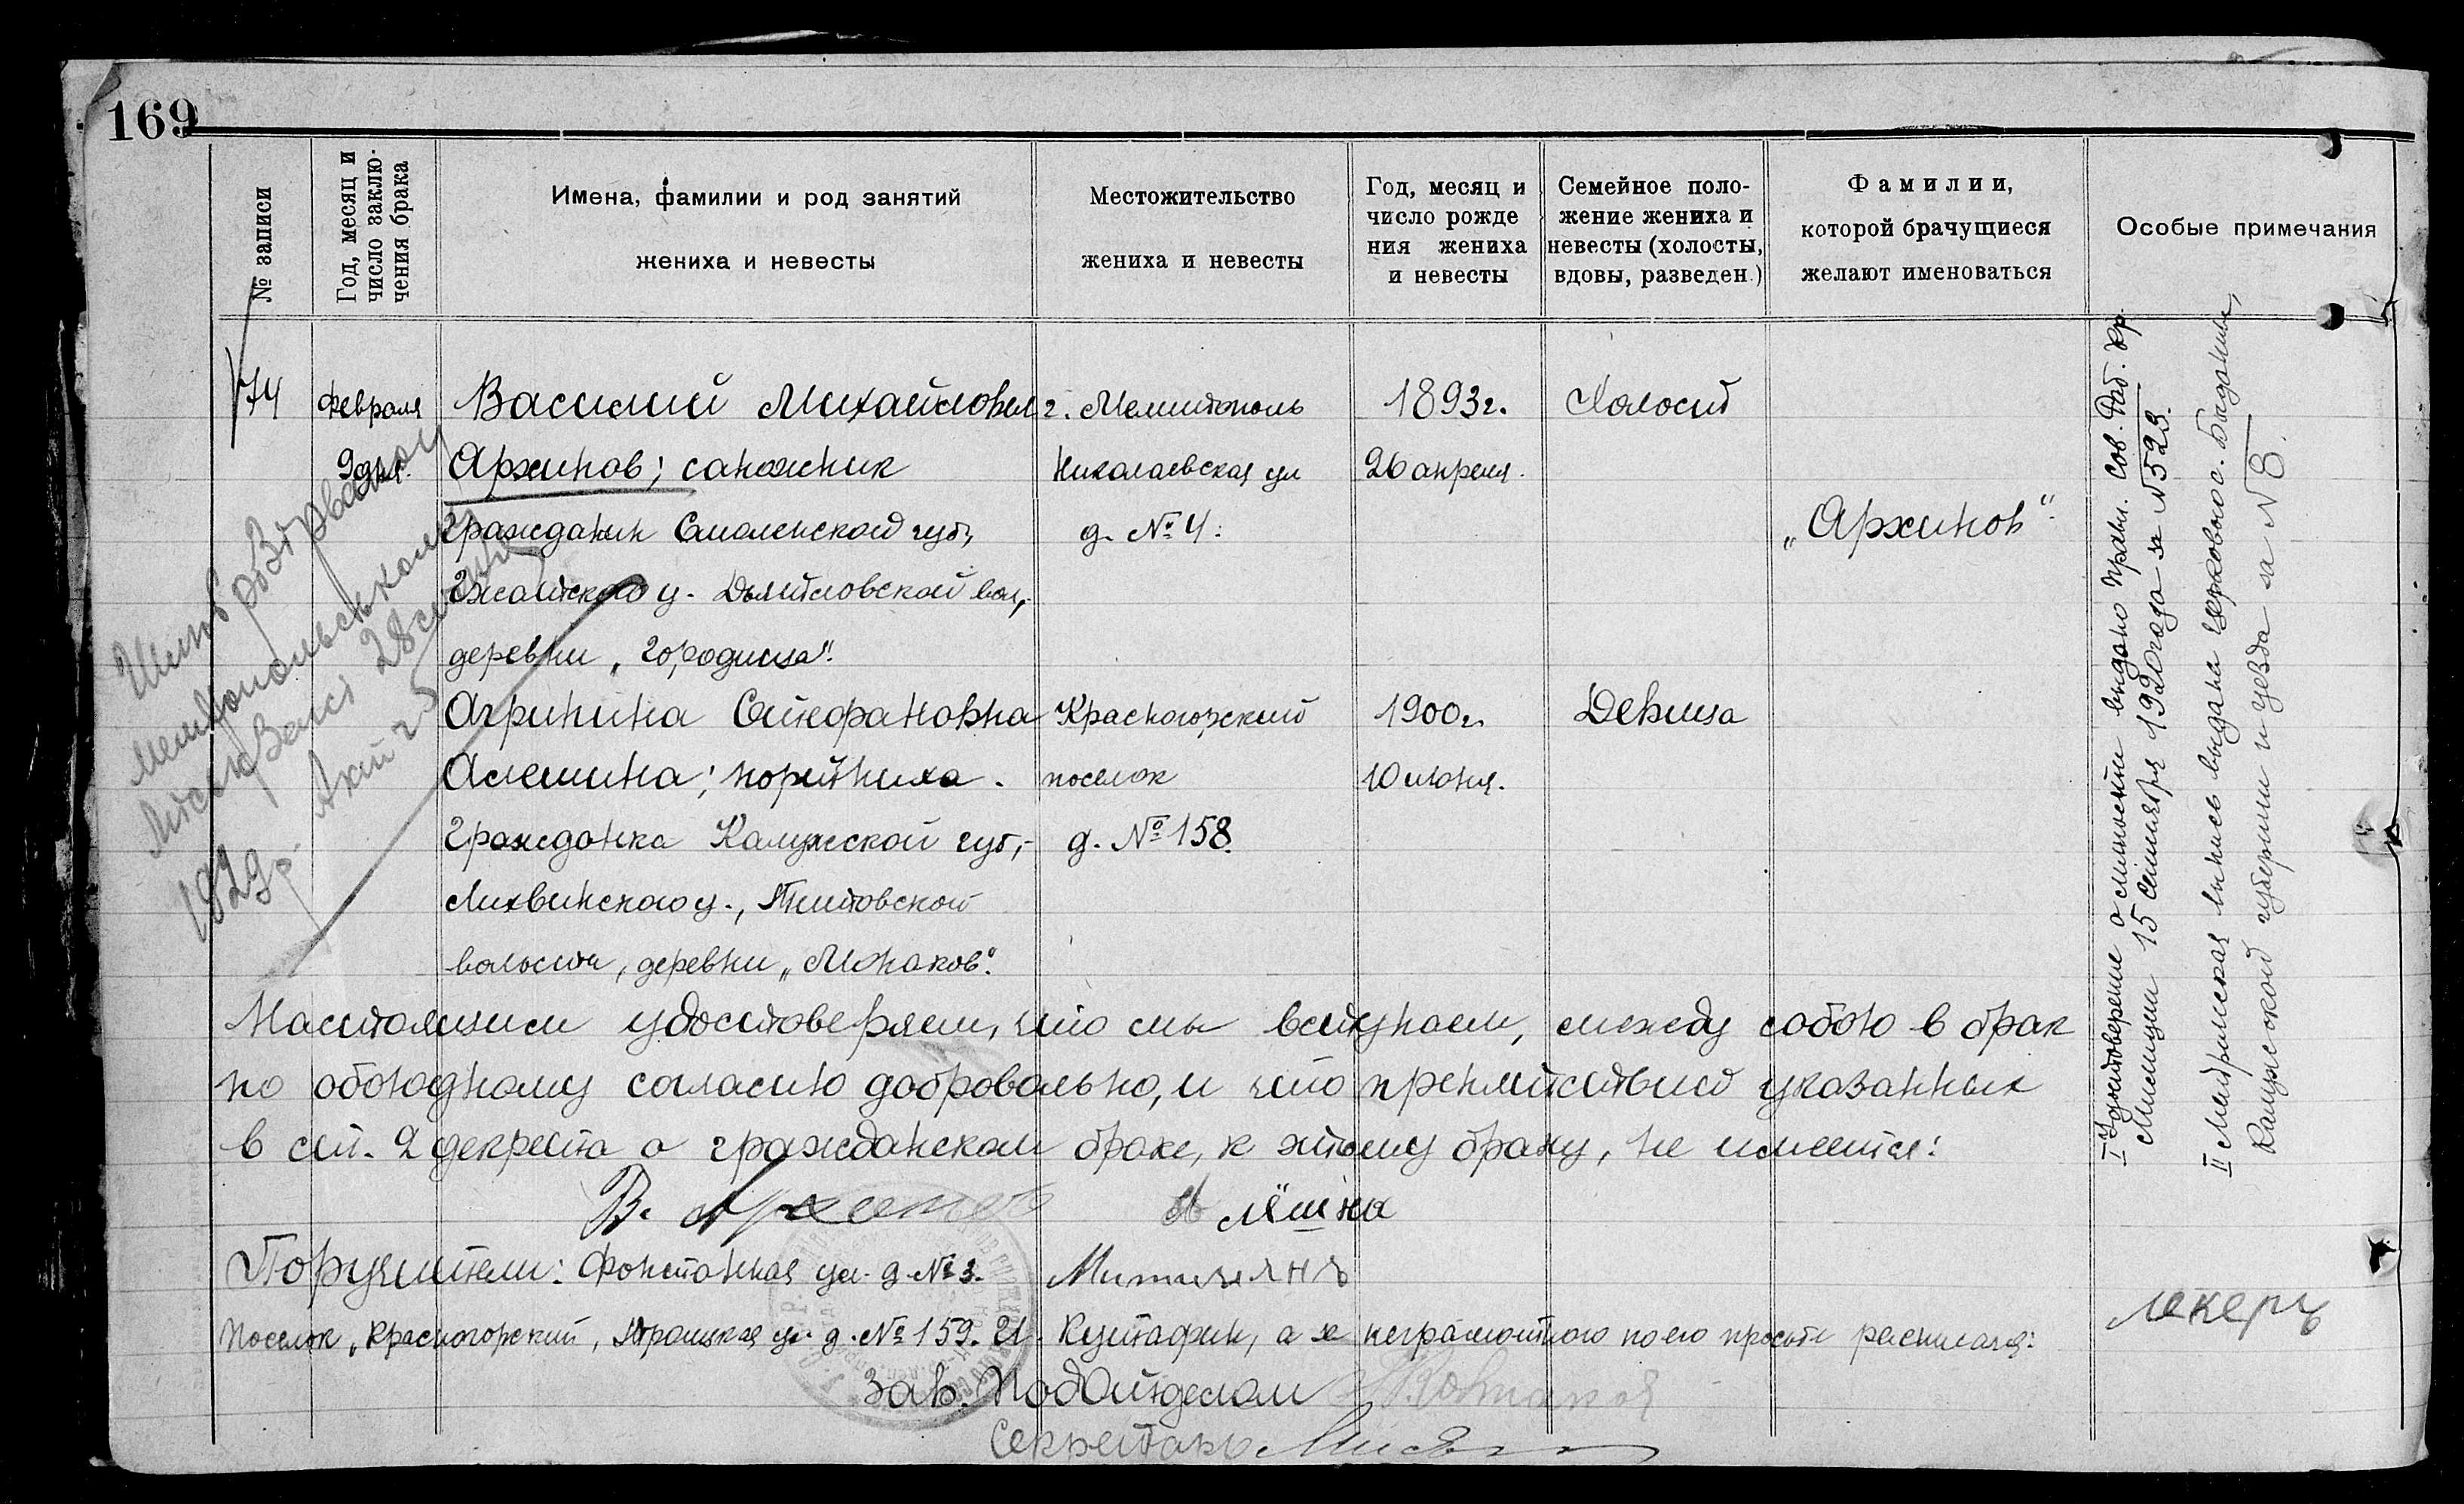 169
№ записи
Год, месяц и
число заклю-
чения брака
Имена, фамилии и род занятий
жениха и невесты
Местожительство
жениха и невесты
Год, месяц и
число рожде
ния жениха
и невесты
Семейное поло-
жение жениха и
невесты (холосты,
вдовы, разведен.)
Фамилии,
которой брачущиеся
желают именоваться
Особые примечания
74
Февраля
9 дня.
Василий Михайлович
Архипов; сапожник
гражданин Смоленской губ.,
Гжатского у. Дмитловской вол.,
деревни „Городища".
г. Мелитополь
Николаевская ул
д. № 4.
1893г.
26 апреля.
Холост
„Архипов"
Агрипина Стефановна
Алешина; портниха.
гражданка Калужской губ.,
Лихвинского у., Титовской
волости, деревни „Монаков".
Красногорский
поселок
д. № 158.
1900г.
10 июня.
Девица
Шлюб розірвано
мелитопольському
28
Акт ч 5
1929 р.
I Удостоверение о личности выдано Правл. Сов. Раб. Кр.
Милиции 15 сентября 1920 года за № 523.
II Метрическая выпись выдана церковью с. Богданы,
Калужской губернии и уезда за № 8.
Настоящим удостоверяем, что мы вступаем, между собою в брак
по обоюдному согласию добровольно, и что препятствий указанных
в ст. 2 декрета о гражданском браке, к этому браку, не имеется:
В. Архипов Алёшина
Поручители: Фонтанная ул. д. № 3.
Поселок „Красногорский, Троицкая ул. д. № 159. И. Кустафин, а за неграмотного по его просьбе расписался:
лекерь
Зав. Подотделом
Секретарь